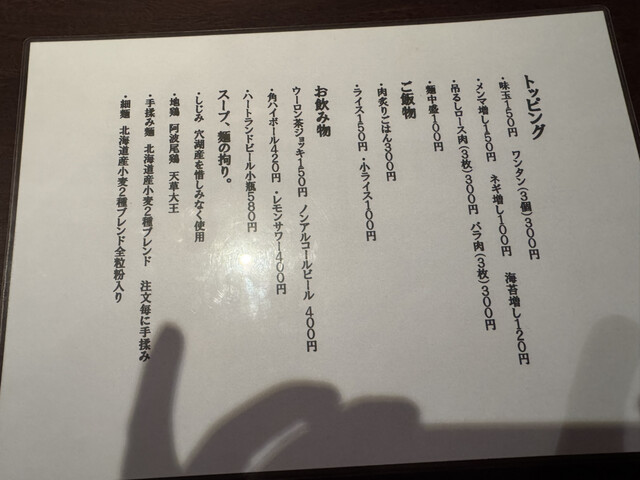 トッピング
・味玉150円 ワンタン(3個)300円
・メンマ増し150円 ネギ増し100円 海苔増し120円
・吊るしロース肉(3枚)300円 バラ肉(3枚)300円
・麺中盛100円
ご飯物
・肉炙りごはん300円
・ライス150円・小ライス100円
お飲み物
ウーロン茶ジョッキ150円 ノンアルコールビール 400円
・角ハイボール420円 ・レモンサワー400円
・ハートランドビール小瓶580円
スープ、麺の拘り。
・しじみ 宍湖産を惜しみなく使用
・地鶏 阿波尾鶏 天草大王
・手揉み麺 北海道産小麦2種ブレンド 注文毎に手揉み
・細麺 北海道産小麦2種ブレンド全粒粉入り